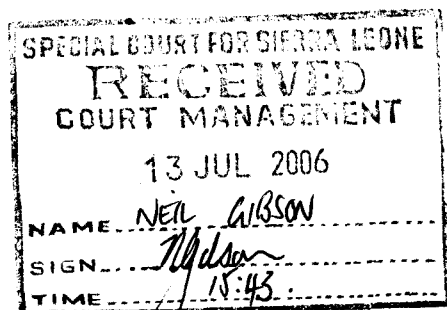 SPECIAL COURT FOR SIERRA LEONE
RECEIVED
COURT MANAGEMENT
13 JUL 2006
NAME NEIL GIBSON
SIGN
TIME 15:43.